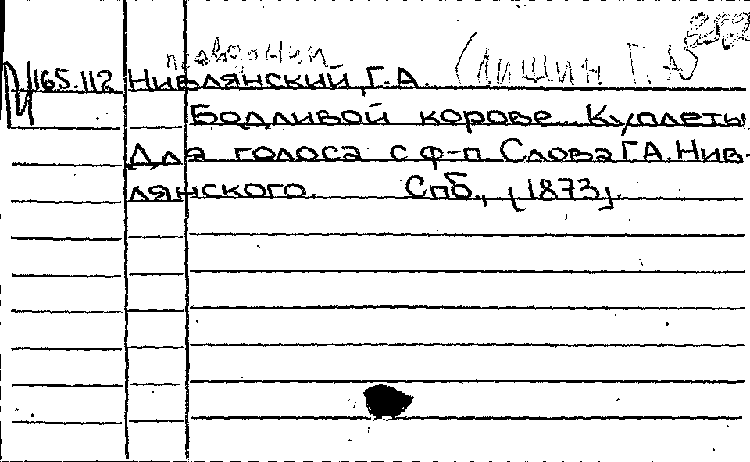 псевдоним
165.112 Нивлянский, Г.А. (Лишин Г.А)
Бодливой корове. Куплеты
Для голоса с ф-п. Слова Г.А. Нив-
лянского. Спб., [1873].